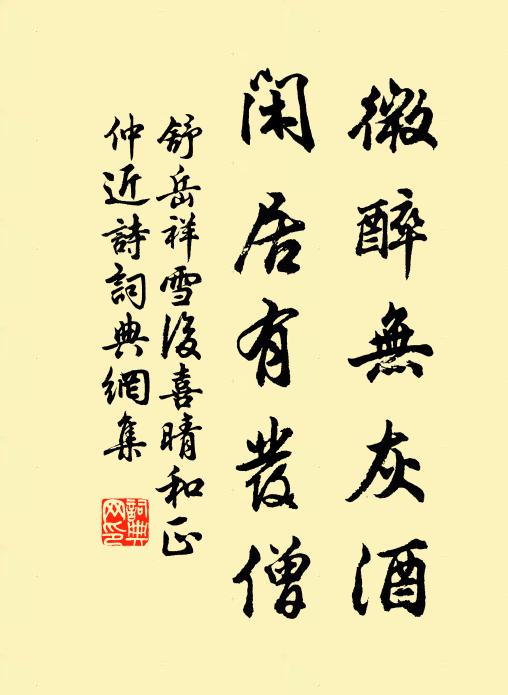 微醉無灰酒
閑居有發僧
舒岳祥雪後喜晴和正
仲近詩詞典網集
詞典网印